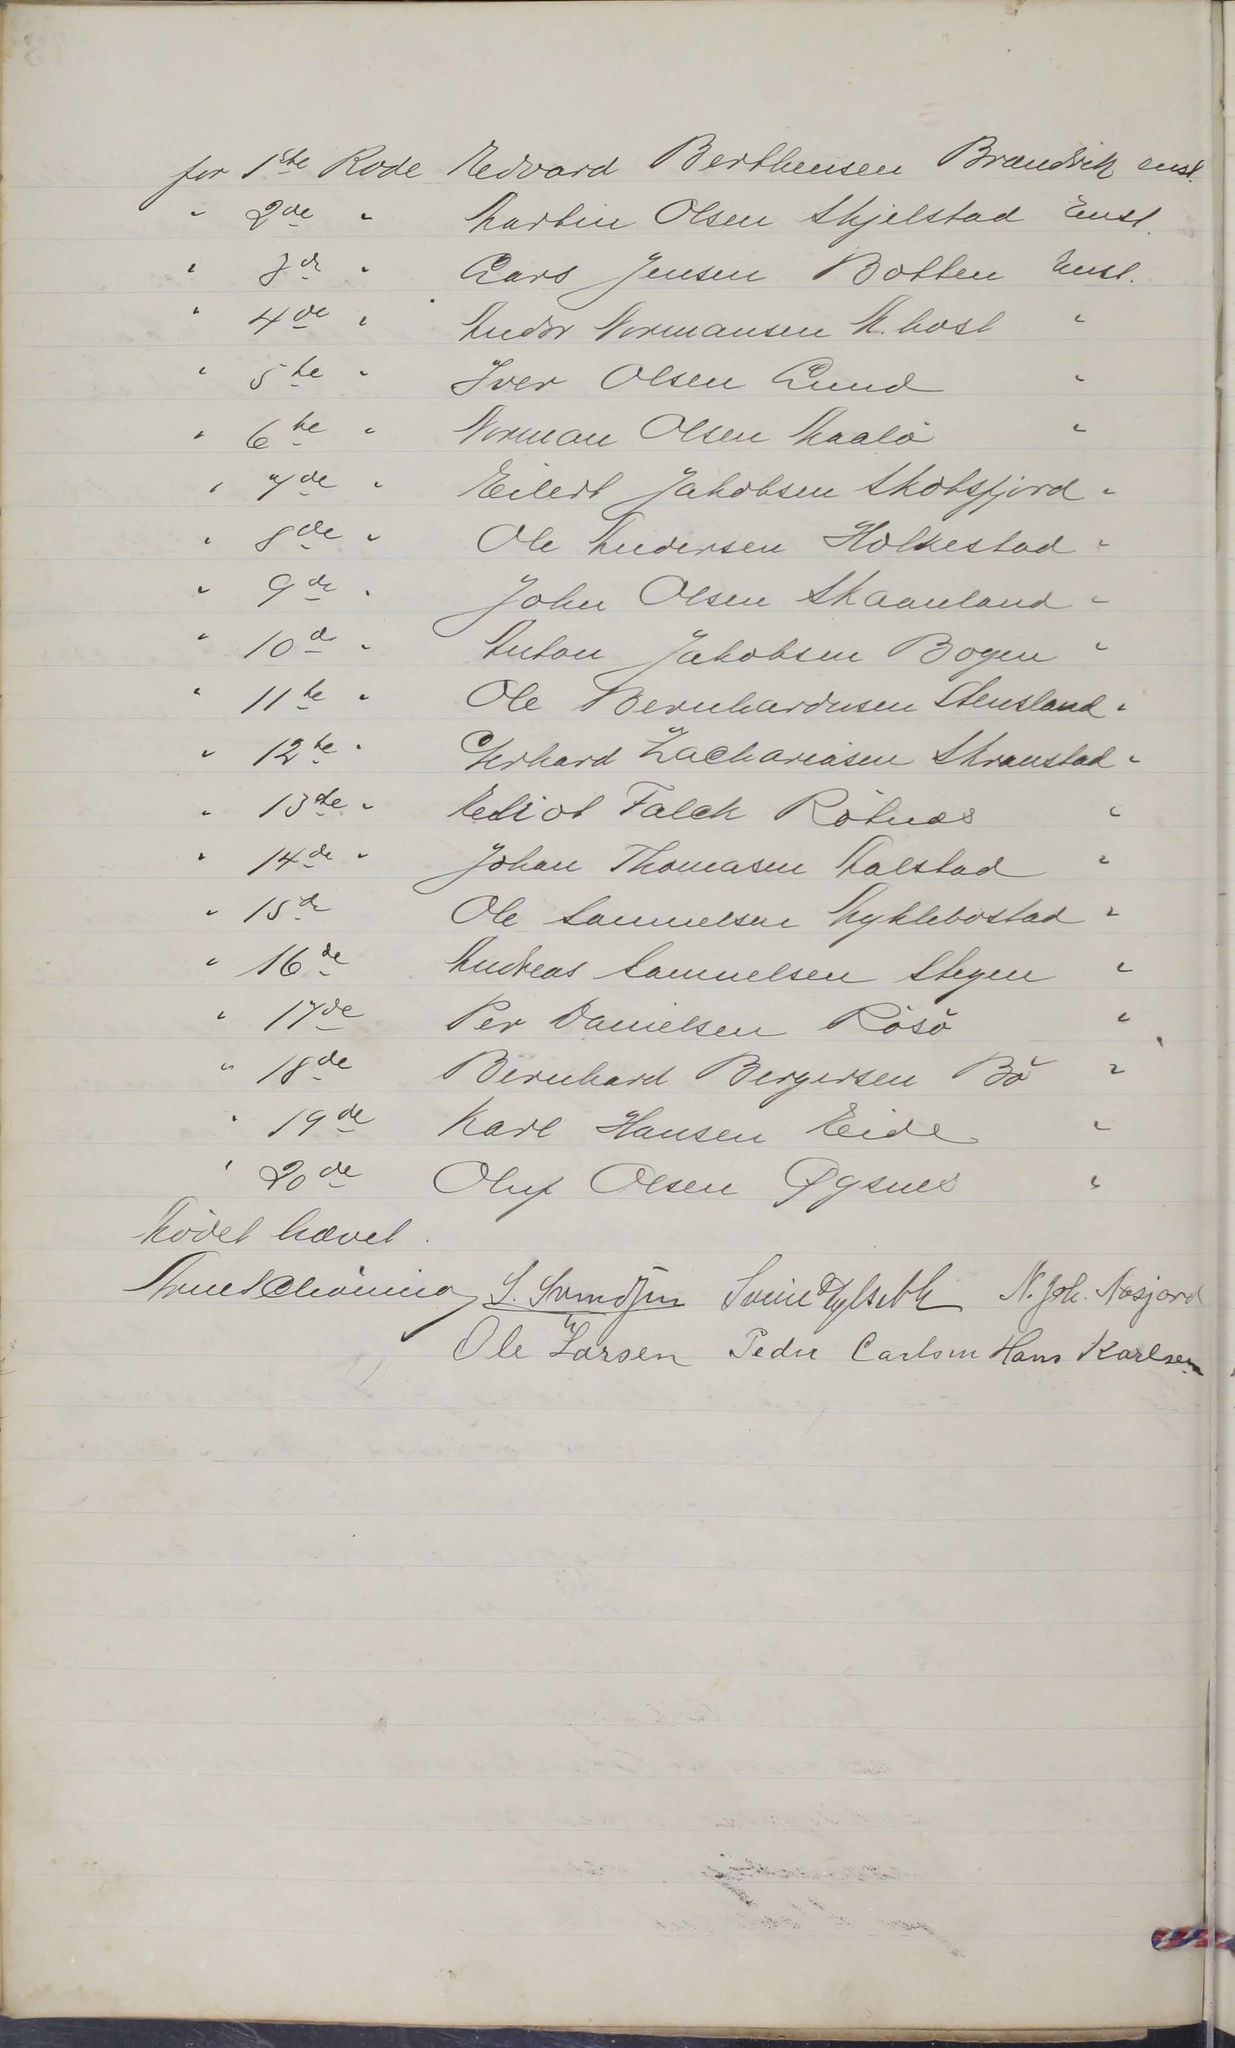 for 1ste Rode Edvard Bertheusen Brandvik enst.
" 2de " Martin Olsen Skjelstad Enst.
" 3de " Lars Jensen Botten Enst.
" 4de " Andor Normansen M. bost "
" 5te " Iver Olsen Lund "
" 6te " Norman Olsen Maalö "
" 7de " Eilert Jakobsen Skotsfjord "
" 8de " Ole Andersen Holkestad "
" 9de " John Olsen Skaanland "
" 10d " Anton Jakobsen Bogen "
" 11te " Ole Bernhardusen Stensland "
" 12te " Gerhard Zachariasen Skranstad "
" 13de " Eliot Falch Rötnes "
" 14de " Johan Thomasen Malstad "
" 15de Ole Samuelsen Myklebostad "
" 16de Andreas Samuelsen Stegen "
" 17de Per Danielsen Rösö "
" 18de Bernhard Bergersen Bö "
" 19de Karl Hansen Eide "
" 20de Oluf Olsen Øgsnes "
Mödet hævet.
Arnt Schöning S. Svendsen N. Joh. Nasjord
Ole Larsen Peder Carlsen Hans Karlsen